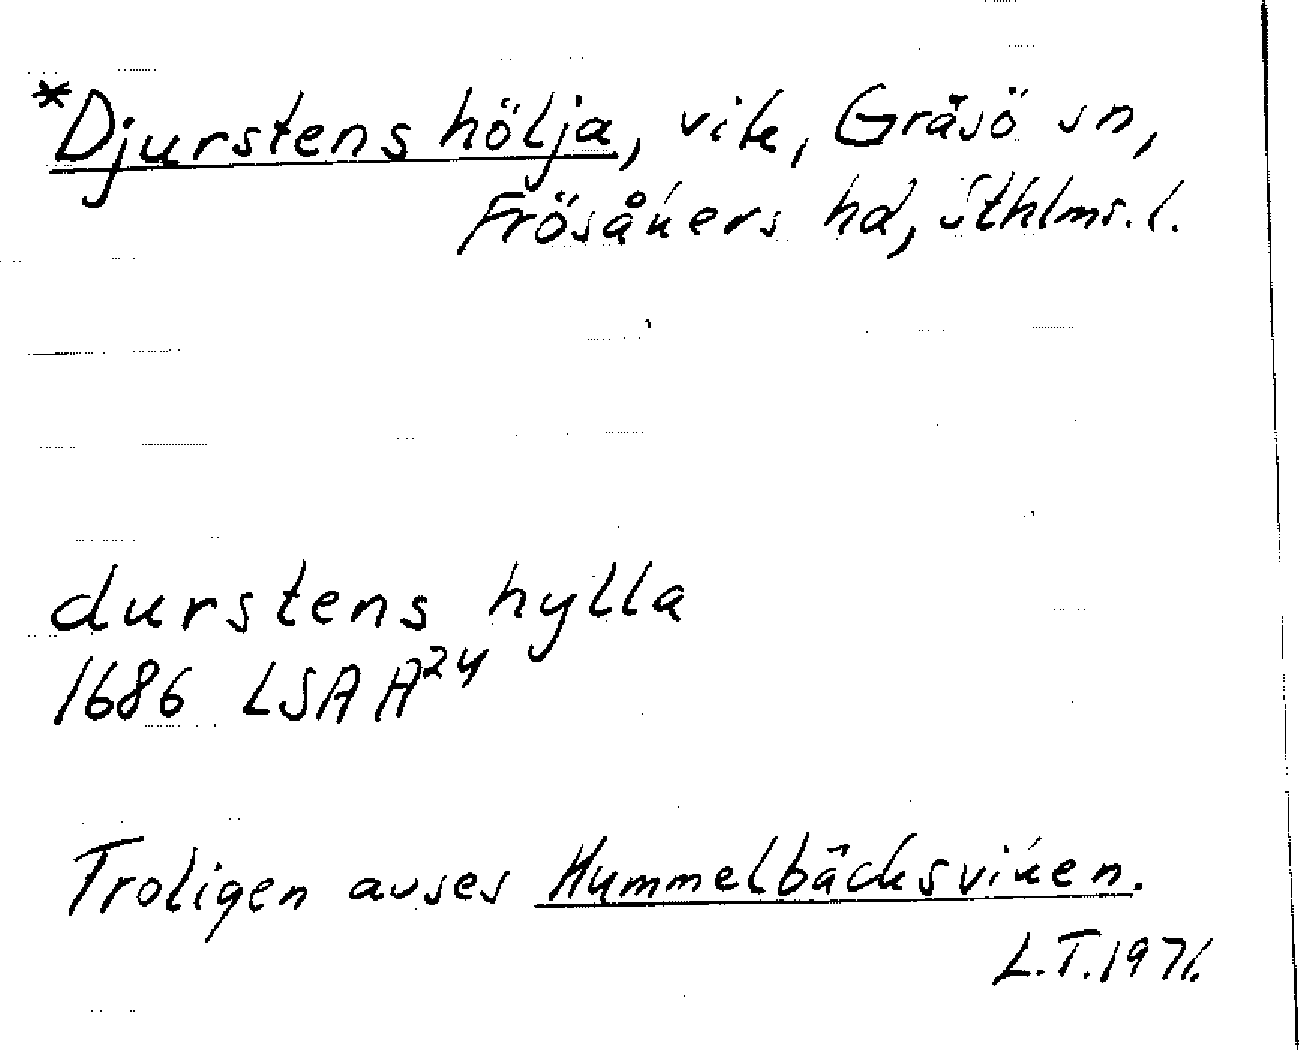 *Djurstens hölja, vik, Gräsö sn,
Frösåkers hd, Sthlms. l.
durstens hylla
1686 LSA A²⁴
Troligen avses Hummelbäcksviken.
L.T. 1971.